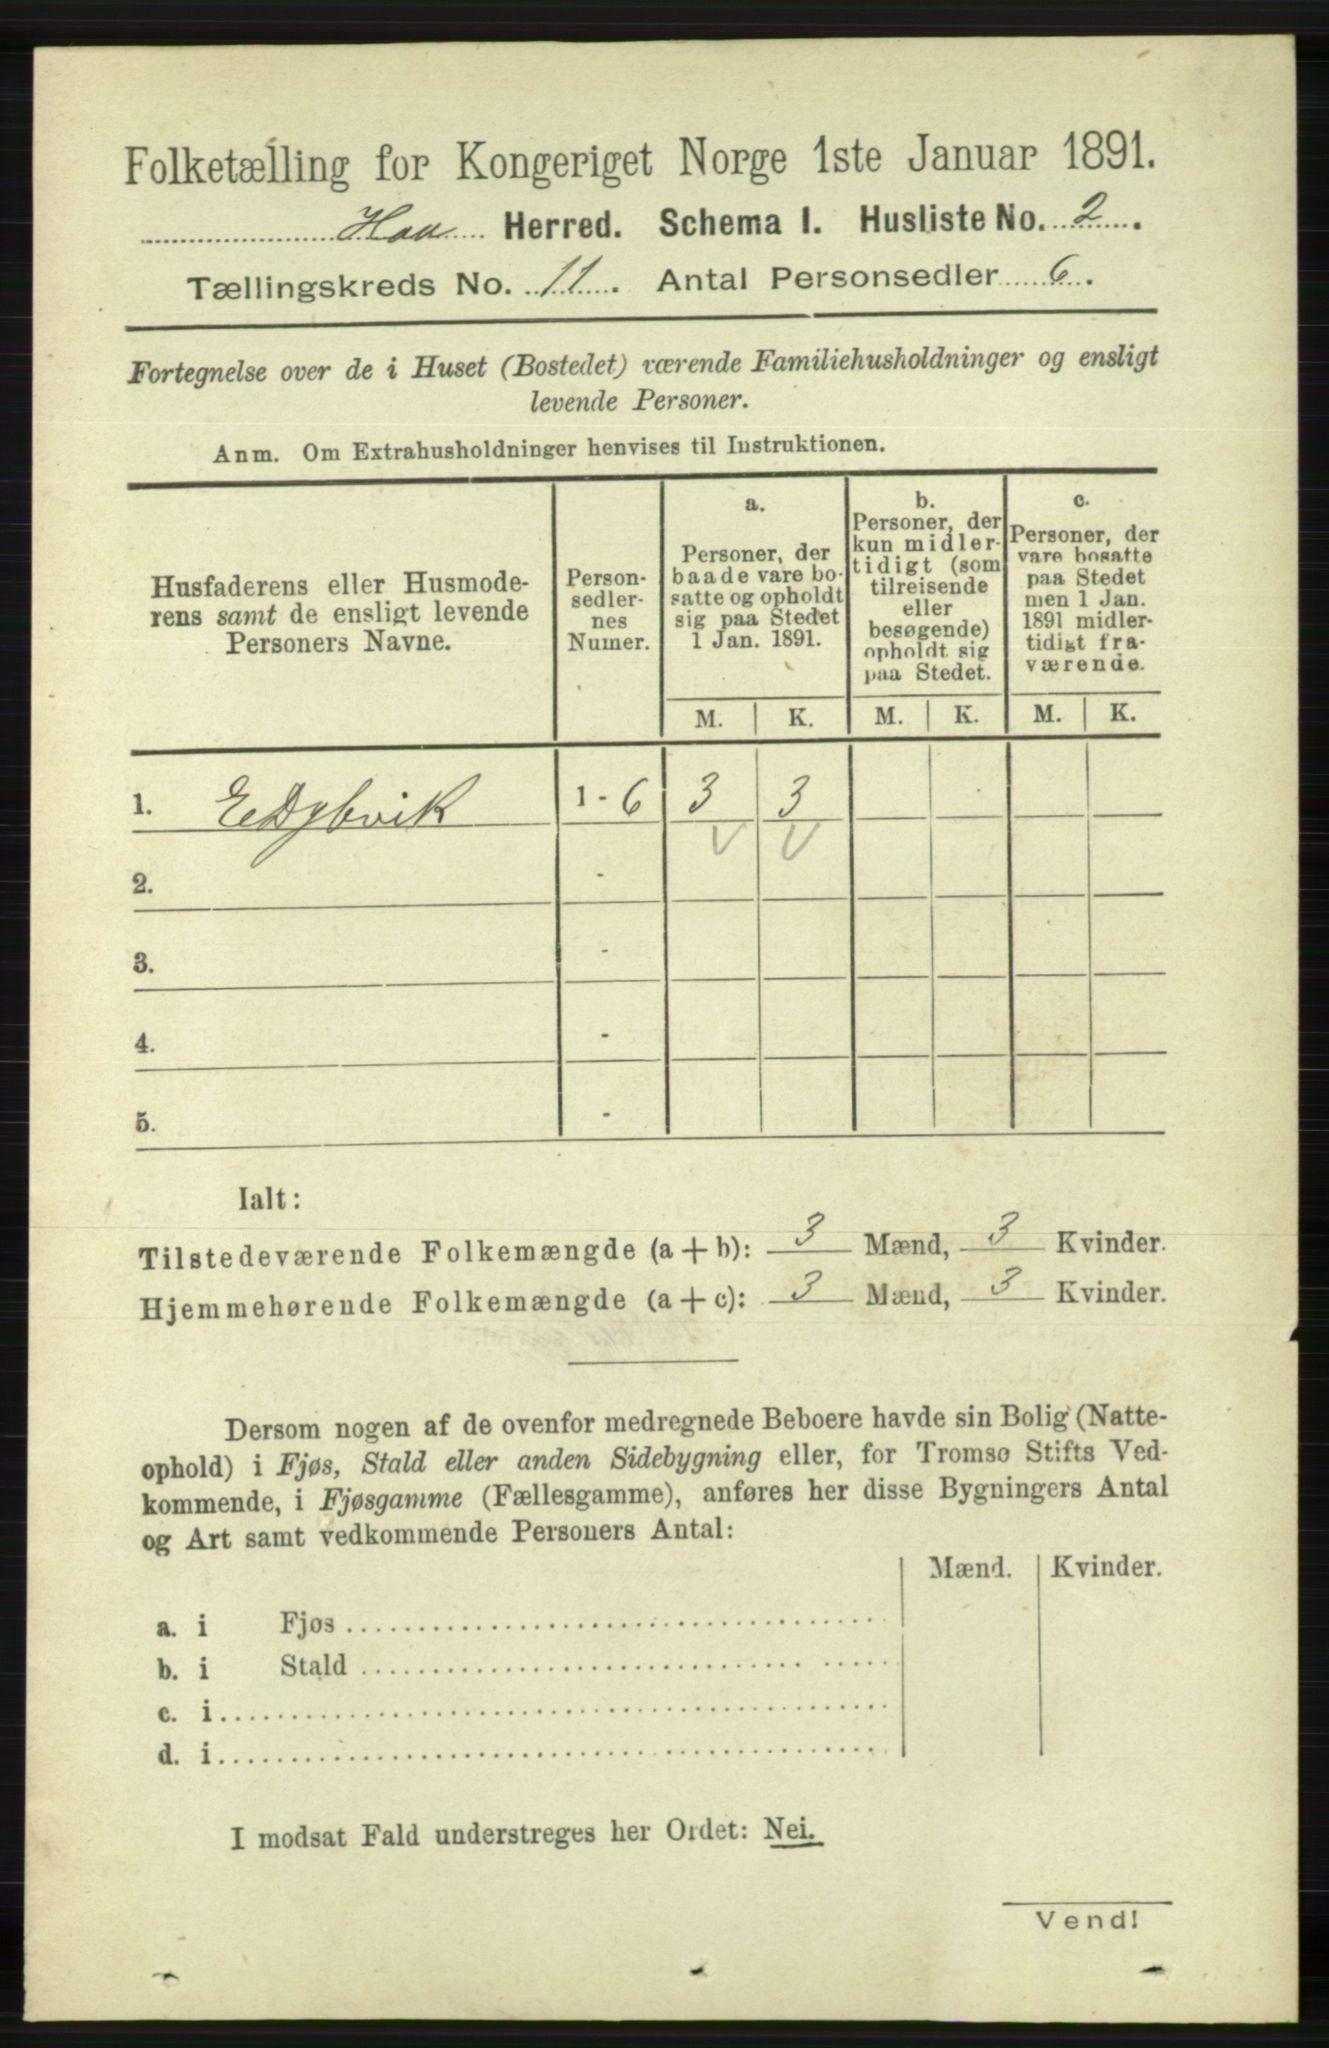 Folketælling for Kongeriget Norge 1ste Januar 1891.
Haa Herred. Schema I. Husliste No. 2.
Tællingskreds No. 11. Antal Personsedler 6.
Fortegnelse over de i Huset (Bostedet) værende Familiehusholdninger og ensligt
levende Personer.
Anm. Om Extrahusholdninger henvises til Instruktionen.
Husfaderens eller Husmode-
rens samt de ensligt levende
Personers Navne.
Person-
sedler-
nes
Numer.
a.
Personer, der
baade vare bo-
satte og opholdt
sig paa Stedet
1 Jan. 1891.
b.
Personer, der
kun midler-
tidigt (som
tilreisende
eller
besøgende)
opholdt sig
paa Stedet.
c.
Personer, der
vare bosatte
paa Stedet
men 1 Jan.
1891 midler-
tidigt fra-
værende.
M. K. M. K. M. K.
1. E Dybvik 1 - 6 3 3
V V
2. -
3. -
4. -
5. -
Ialt:
Tilstedeværende Folkemængde (a + b): 3 Mænd, 3 Kvinder.
Hjemmehørende Folkemængde (a + c): 3 Mænd, 3 Kvinder.
Dersom nogen af de ovenfor medregnede Beboere havde sin Bolig (Natte-
ophold) i Fjøs, Stald eller anden Sidebygning eller, for Tromsø Stifts Ved-
kommende, i Fjøsgamme (Fællesgamme), anføres her disse Bygningers Antal
og Art samt vedkommende Personers Antal:
Mænd. Kvinder.
a. i Fjøs
b. i Stald
c. i
d. i
I modsat Fald understreges her Ordet: Nei.
Vend!